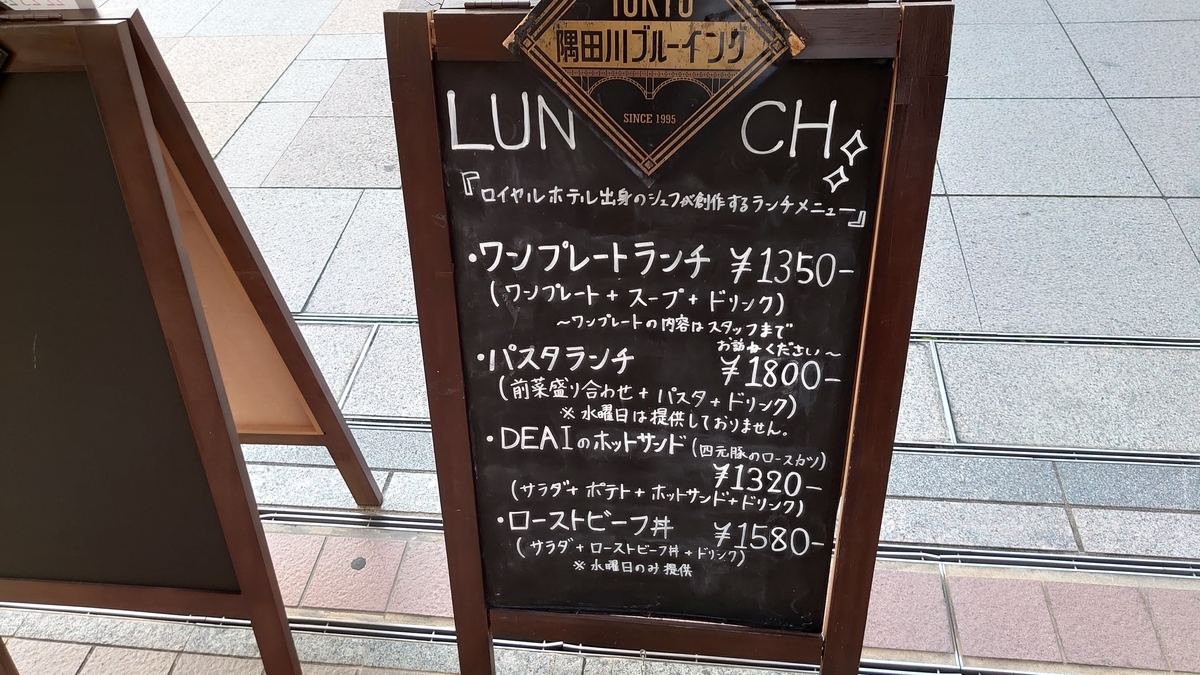 TOKYO
隅田川ブルーイング
SINCE 1995
LUNCH
『ロイヤルホテル出身のシェフが創作するランチメニュー』
・ワンプレートランチ ¥1350-
(ワンプレート + スープ + ドリンク)
~ワンプレートの内容はスタッフまで
お訪ねください~
・パスタランチ ¥1800-
(前菜盛り合わせ + パスタ + ドリンク)
※水曜日は提供しておりません。
・DEAIのホットサンド(四元豚のロースカツ)
¥1320-
(サラダ + ポテト + ホットサンド + ドリンク)
・ローストビーフ丼 ¥1580-
(サラダ + ローストビーフ丼 + ドリンク)
※水曜日のみ提供